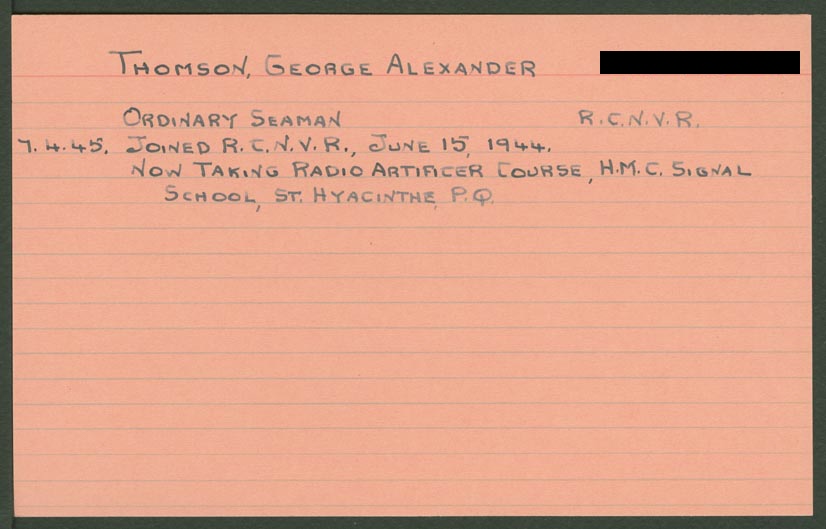 THOMSON, GEORGE ALEXANDER
ORDINARY SEAMAN R.C.N.V.R.
7.4.45. JOINED R.C.N.V.R., JUNE 15, 1944.
NOW TAKING RADIO ARTIFICER COURSE, H.M.C. SIGNAL
SCHOOL, ST. HYACINTHE, P.Q.